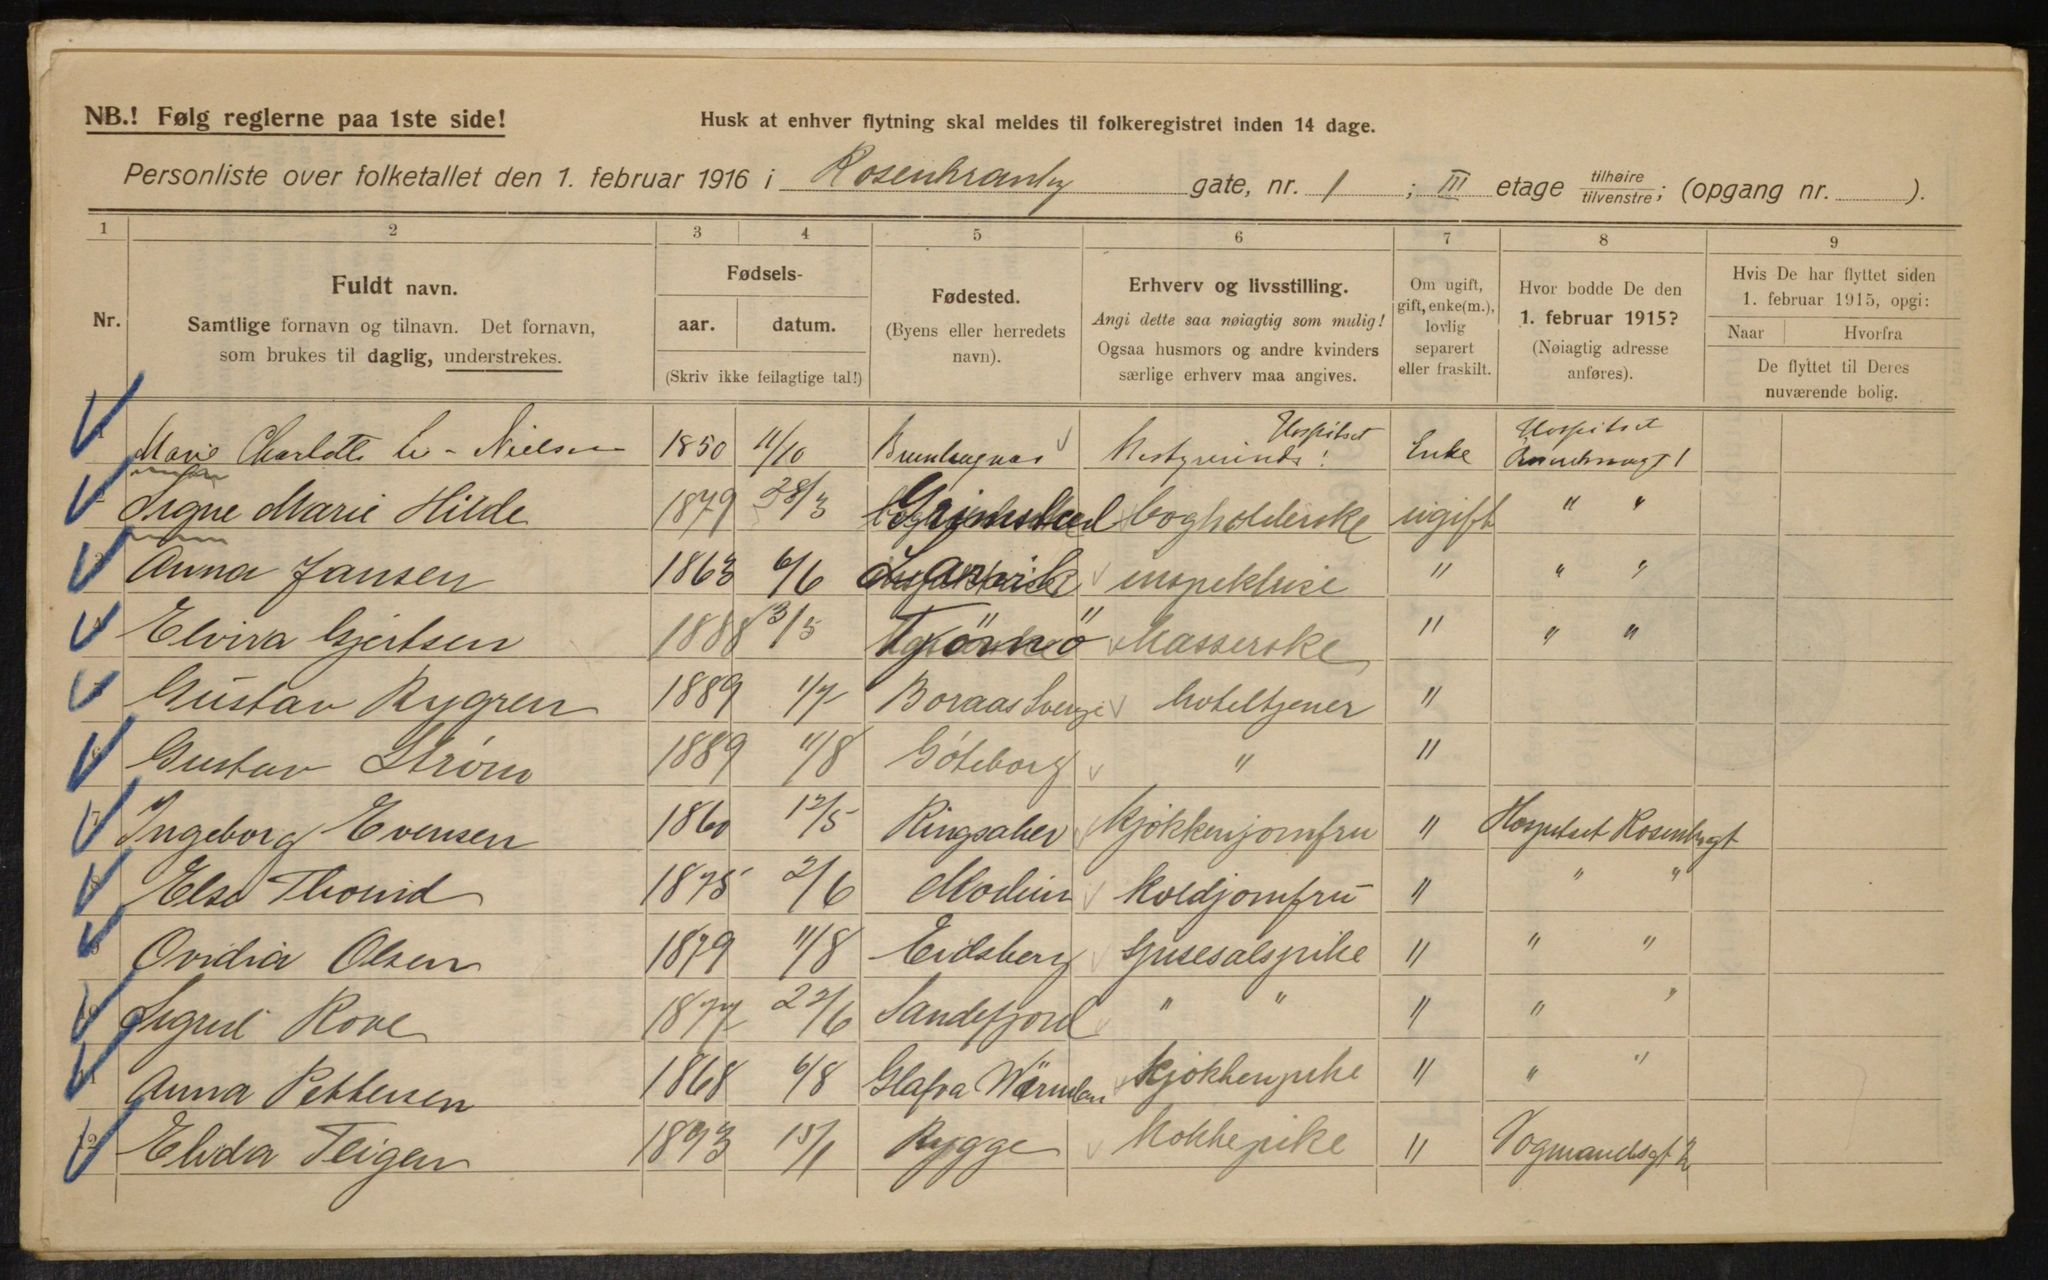 NB.! Følg reglerne paa 1ste side!
Husk at enhver flytning skal meldes til folkeregistret inden 14 dage.
Personliste over folketallet den 1. februar 1916 i Rosenkrantz gate, nr. 1 ; III etage tilhøire tilvenstre; (opgang nr. ).
1 2 3 4 5 6 7 8 9
Nr.
Fuldt navn.
Samtlige fornavn og tilnavn. Det fornavn,
som brukes til daglig, understrekes.
Fødsels-
aar. datum.
(Skriv ikke feilagtige tal!)
Fødested.
(Byens eller herredets
navn).
Erhverv og livsstilling.
Angi dette saa nøiagtig som mulig!
Ogsaa husmors og andre kvinders
særlige erhverv maa angives.
Om ugift,
gift, enke(m.),
lovlig
separert
eller fraskilt.
Hvor bodde De den
1. februar 1915?
(Nøiagtig adresse
anføres).
Hvis De har flyttet siden
1. februar 1915, opgi:
Naar Hvorfra
De flyttet til Deres
nuværende bolig.
1 Marie Charlotte Nielsen 1850 11/10 Hospitset Enke Hospitset
2 Signe Marie Hilde 1879 28/3 Grimstad bogholderske ugift " "
3 Anna Jansen 1863 6/6 Larvik inspektrise " " "
4 Elvira Gjertsen 1888 3/5 Tjömö Kasserske " " "
5 Gustav Rygren 1889 1/7 Boraas Sverige hoteltjener "
6 Gustav Strøm 1889 11/8 Göteborg " "
7 Ingeborg Evensen 1860 12/5 Ringsaker Kjøkkenjomfru " Hospitset Rosenkrgt
8 Else Thorud 1875 2/6 Modum Koldjomfru " " "
9 Ovidia Olsen 1879 11/8 Eidsberg Spisesalspike " " "
10 Sigrid Rove 1877 22/6 Sandefjord " " " " "
11 Anna Pettersen 1868 6/8 Glafva Wärmlan Kjøkkenpike " " "
12 Elida Teigen 1893 15/1 Rygge Kokkepike " Vognmandsgt 2